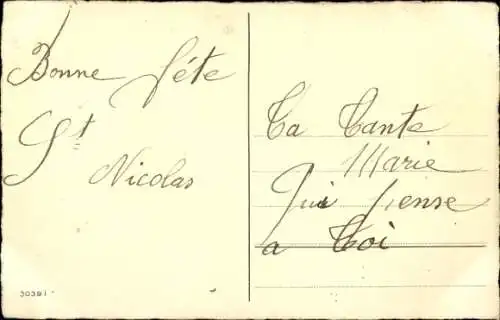 Bonne fête
St
Nicolas
Ta Tante
Marie
Qui pense
a Toi
30391